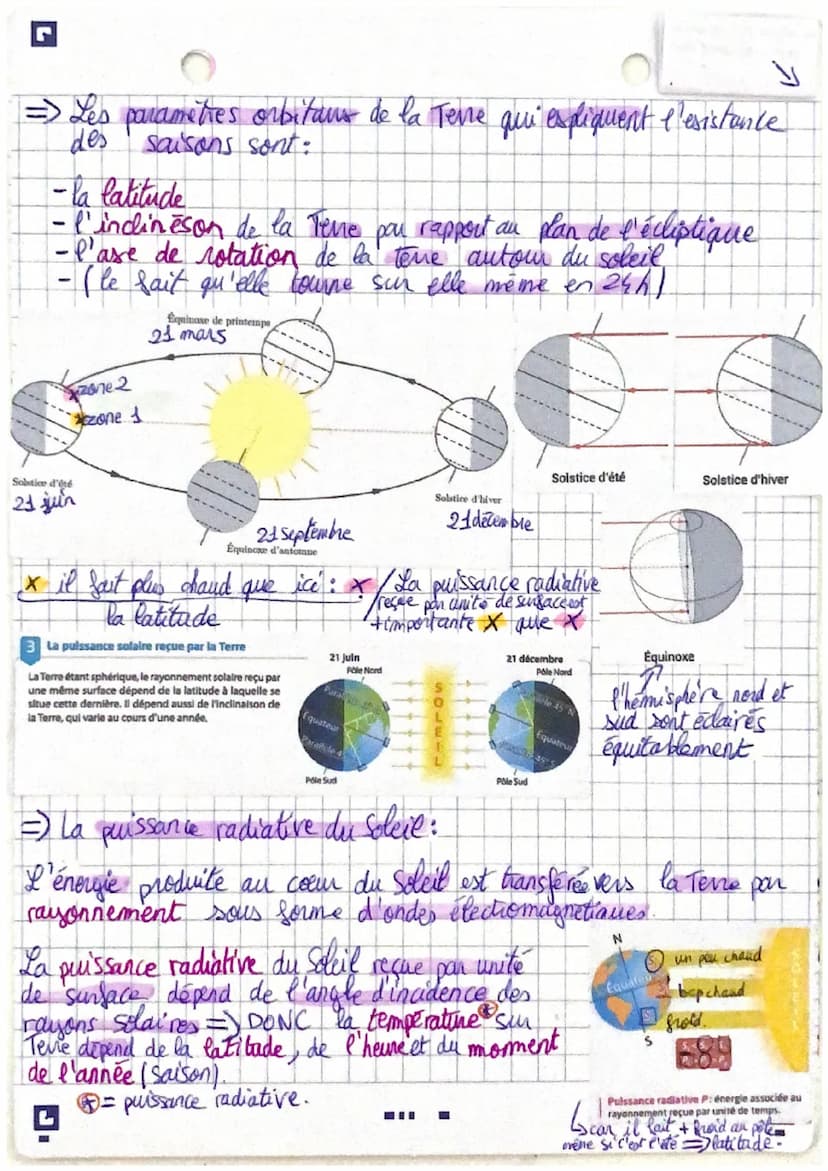 => Les paramètres orbitaux de la Terre qui expliquent l'existance
des saisons sont :
- la latitude
- l'inclinéson de la Terre par rapport au plan de l'écliptique
- l'axe de rotation de la terre autour du soleil
- (le fait qu'elle tourne sur elle même en 24h)
Équinoxe de printemps
21 mars
zone 2
zone 1
Solstice d'été
21 juin
Solstice d'hiver
21 décembre
21 septembre
Équinoxe d'automne
Solstice d'été
Solstice d'hiver
x il fait plus chaud que ici : x / La puissance radiative
la latitude
reçue par unité de surface est
+ importante x que x
Équinoxe
l'hémisphère nord et
sud sont éclairés
équitablement
3 La puissance solaire reçue par la Terre
La Terre étant sphérique, le rayonnement solaire reçu par
une même surface dépend de la latitude à laquelle se
situe cette dernière. Il dépend aussi de l'inclinaison de
la Terre, qui varie au cours d'une année.
21 juin
Pôle Nord
Équateur
Pôle Sud
SOLEIL
21 décembre
Pôle Nord
Parallèle 45° N
Équateur
Parallèle 45° S
Pôle Sud
=> La puissance radiative du Soleil :
L'énergie produite au cœur du Soleil est transférée vers la Terre par
rayonnement sous forme d'ondes électromagnétiques.
La puissance radiative du Soleil reçue par unité
de surface dépend de l'angle d'incidence des
rayons solaires => DONC la température* sur
Terre dépend de la latitude, de l'heure et du moment
de l'année (saison).
* = puissance radiative.
N
Équateur
S
un peu chaud
bcp chaud
froid.
Puissance radiative P : énergie associée au
rayonnement reçue par unité de temps.
↳ car il fait + froid au pôle
même si c'est l'été => latitude.